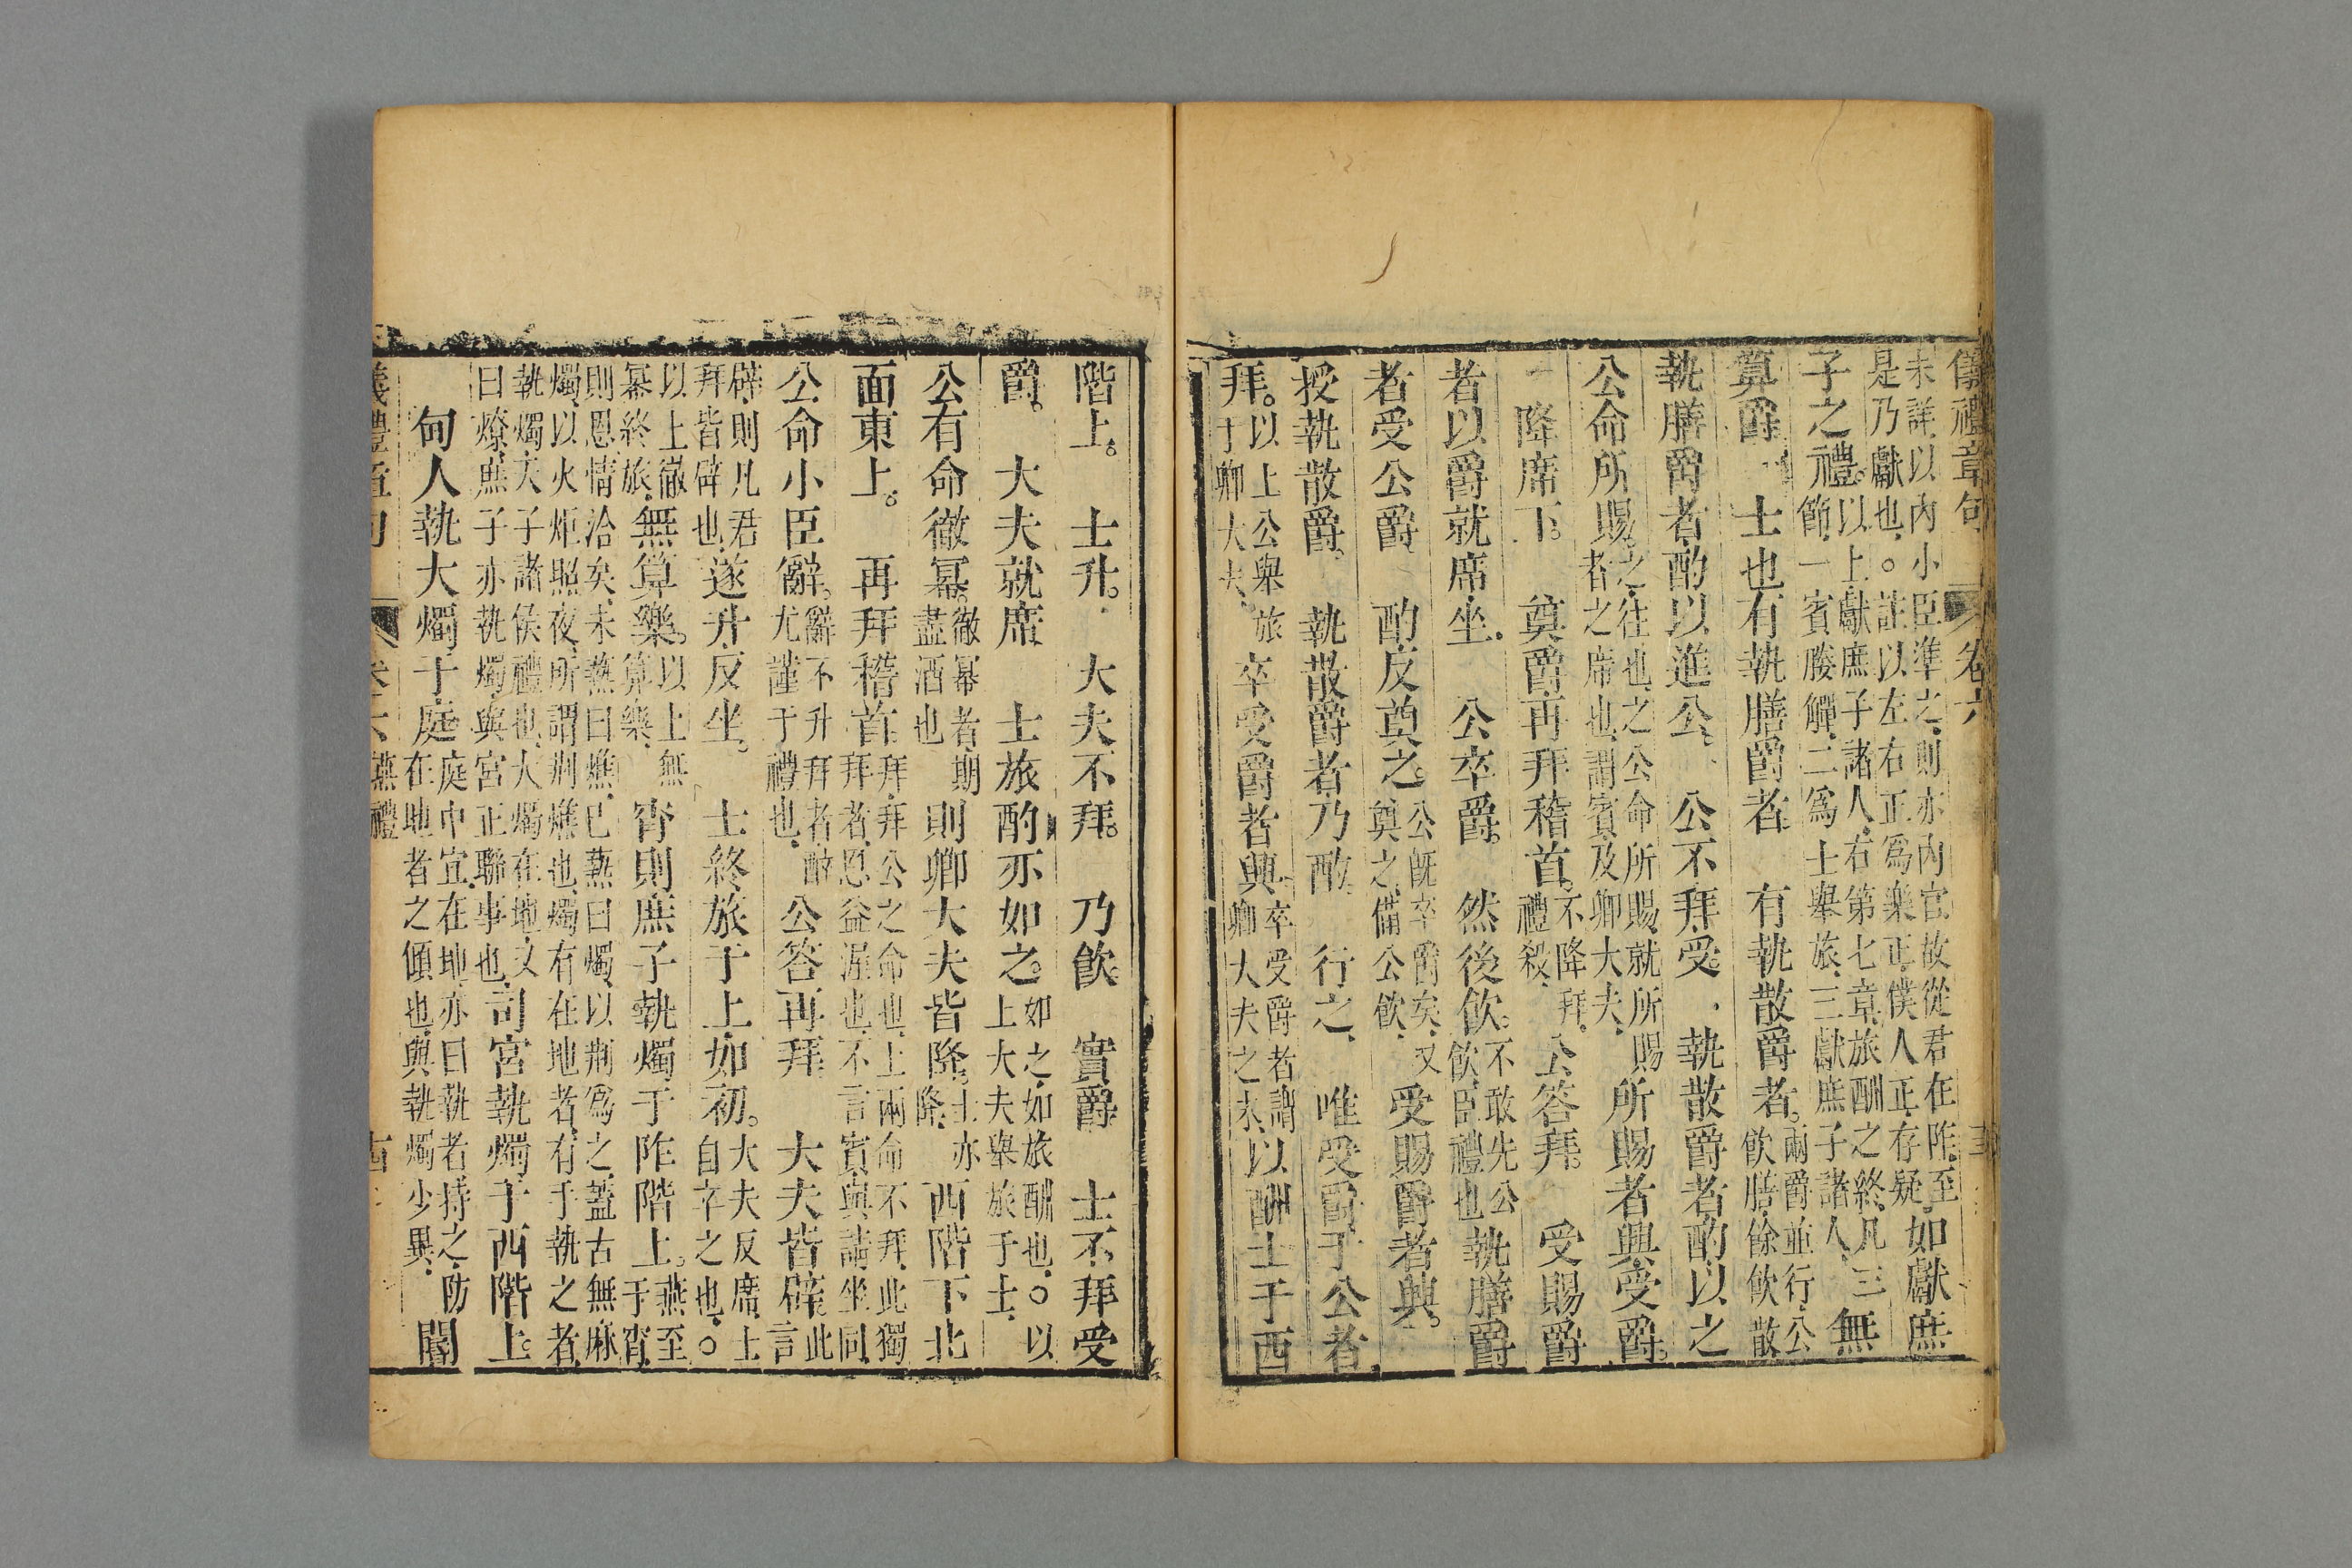 儀禮章句 卷六
未詳以內小臣準之則亦內官故從君在阼至
是乃獻也○註以左右正爲樂正僕人正存疑如獻庶
子之禮以上獻庶子諸人右第七章旅酬之終凡三
節一賓媵觶二爲士舉旅三獻庶子諸人無
算爵 士也有執膳爵者 有執散爵者兩爵並行公
飲膳餘飲散
執膳爵者酌以進公 公不拜受 執散爵者酌以之
公命所賜之往也之公命所賜就所賜
者之席也謂賓及卿大夫 所賜者興受爵
降席下 奠爵再拜稽首不降拜
禮殺 公答拜 受賜爵
者以爵就席坐 公卒爵 然後飲不敢先公
飲臣禮也執膳爵
者受公爵 酌反奠之公旣卒爵矣又
奠之備公飲 受賜爵者興
授執散爵 執散爵者乃酌 行之 唯受爵于公者
拜以上公舉旅
于卿大夫 卒受爵者興卒受爵者謂
卿大夫之末以酬士于西
階上 士升 大夫不拜 乃飲 實爵 士不拜受
爵 大夫就席 士旅酌亦如之如之如旅酬也○以
上大夫舉旅于士
公有命徹冪徹冪者期
盡酒也 則卿大夫皆降士亦
降 西階下北
面東上 再拜稽首拜拜公之命也上兩命不拜此獨
拜者恩益渥也不言賓與諸坐同
公命小臣辭辭不升拜者辭
尤謹于禮也 公答再拜 大夫皆辟此
言
辟則凡君
拜皆辟也 遂升反坐 士終旅于上如初大夫反席士
自卒之也○
以上徹
冪終旅無算樂以上無
算樂 宵則庶子執燭于阼階上燕至
于宵
則恩情洽矣未爇曰燋已爇曰燭以荆爲之蓋古無麻
燭以火炬照夜所謂荆燋也燭有在地者有于執之者
執燭天子諸侯禮也大燭在地又
曰燎庶子亦執燭與宮正聯事也司宮執燭于西階上
甸人執大燭于庭庭中宜在地亦曰執者持之防
在地者之傾也與執燭少異 閽
儀禮章句 卷六 燕禮